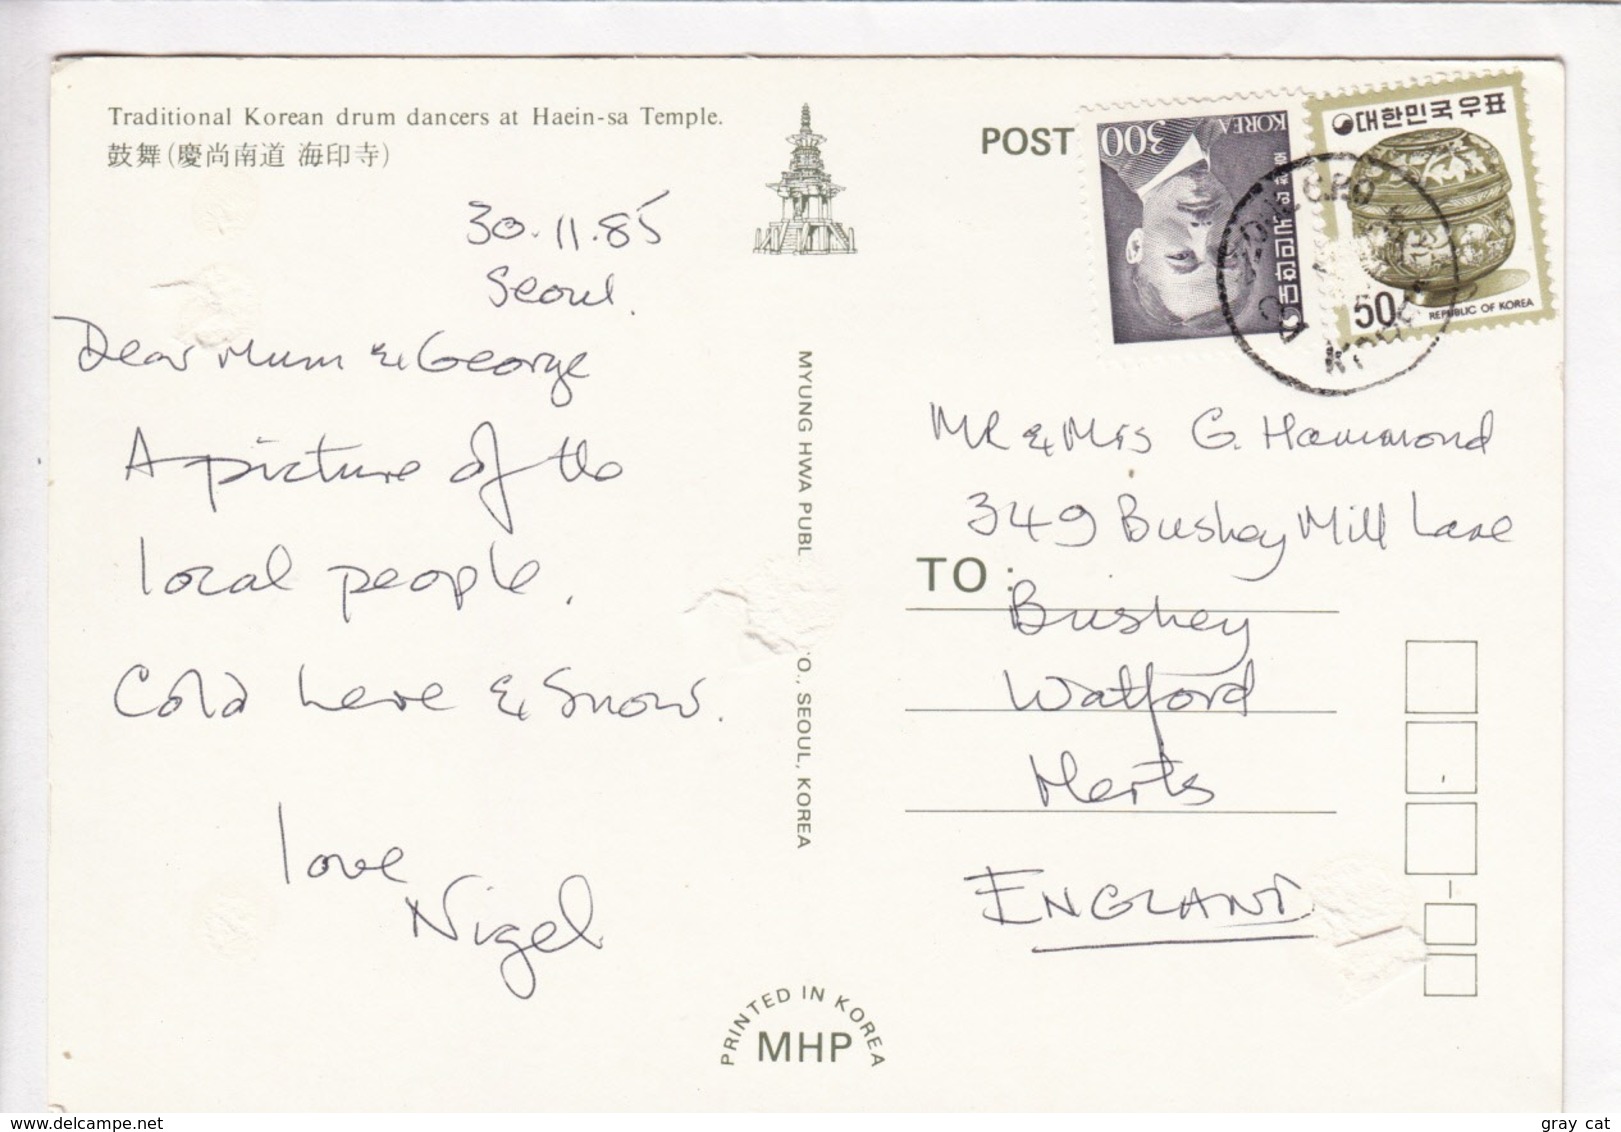 Traditional Korean drum dancers at Haein-sa Temple.
鼓舞(慶尚南道 海印寺)
30.11.85
Seoul.
Dear Mum & George
A picture of the
local people.
Cold here & Snow.
love
Nigel
MYUNG HWA PUBL
'O., SEOUL, KOREA
PRINTED IN KOREA
MHP
POST
300
KOREA
대한민국
대한민국우표
50
REPUBLIC OF KOREA
MR & Mrs G. Hammond
349 Bushey Mill Lane
TO :
Bushey
Watford
Herts
ENGLAND
gray cat